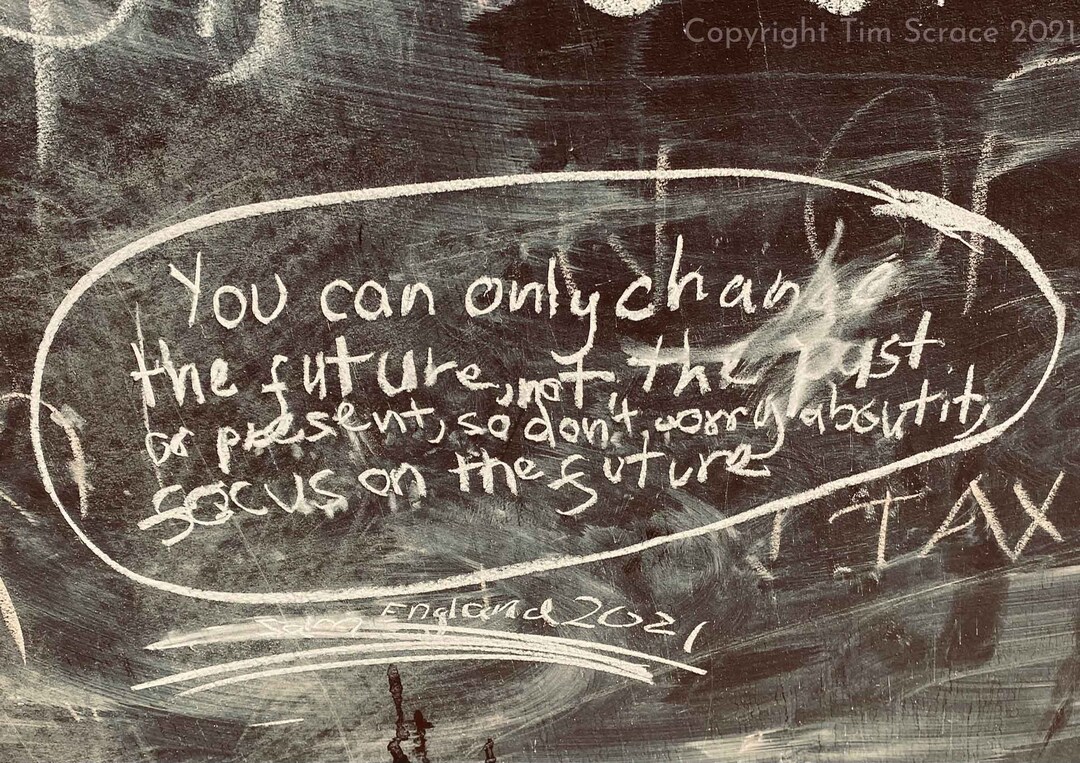 Copyright Tim Scrace 2021
You can only change
the future, not the past
or present, so don't worry about it,
focus on the future
TAX
England 2021